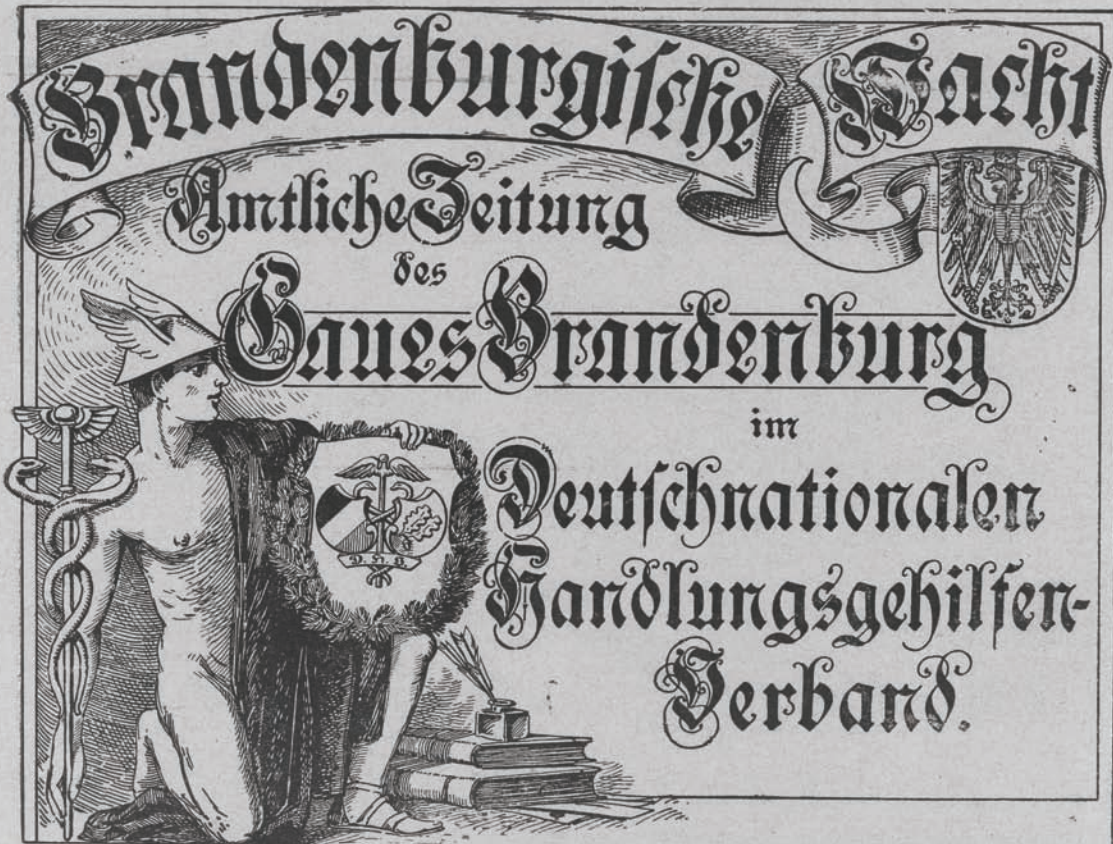 Brandenburgische Wacht
Amtliche Zeitung
des
Gaues Brandenburg
im
Deutschnationalen
Handlungsgehilfen-
Verband.
D. H. V.